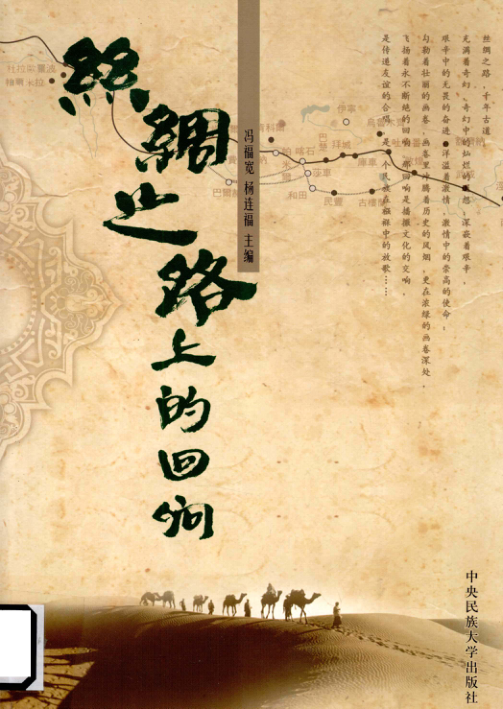 絲綢之路上的回响
冯福宽 杨连福 主编
丝绸之路,千年古道,
充满着奇幻,奇幻中的灿烂的理想,深藏着艰辛。
艰辛中的无畏的奋进,洋溢着激情,激情中的崇高的使命:
勾勒着壮丽的画卷,画卷里沸腾着历史的风烟,更在浓绿的画卷深处,
飞扬着永不断绝的回响,那回响是播撒文化的交响,
是传递友谊的合唱,是一个民族在 中的放歌……
杜拉歐羅波
伊寧
拜城
庫車
莎車
和田
民豐
古樓
中央民族大学出版社